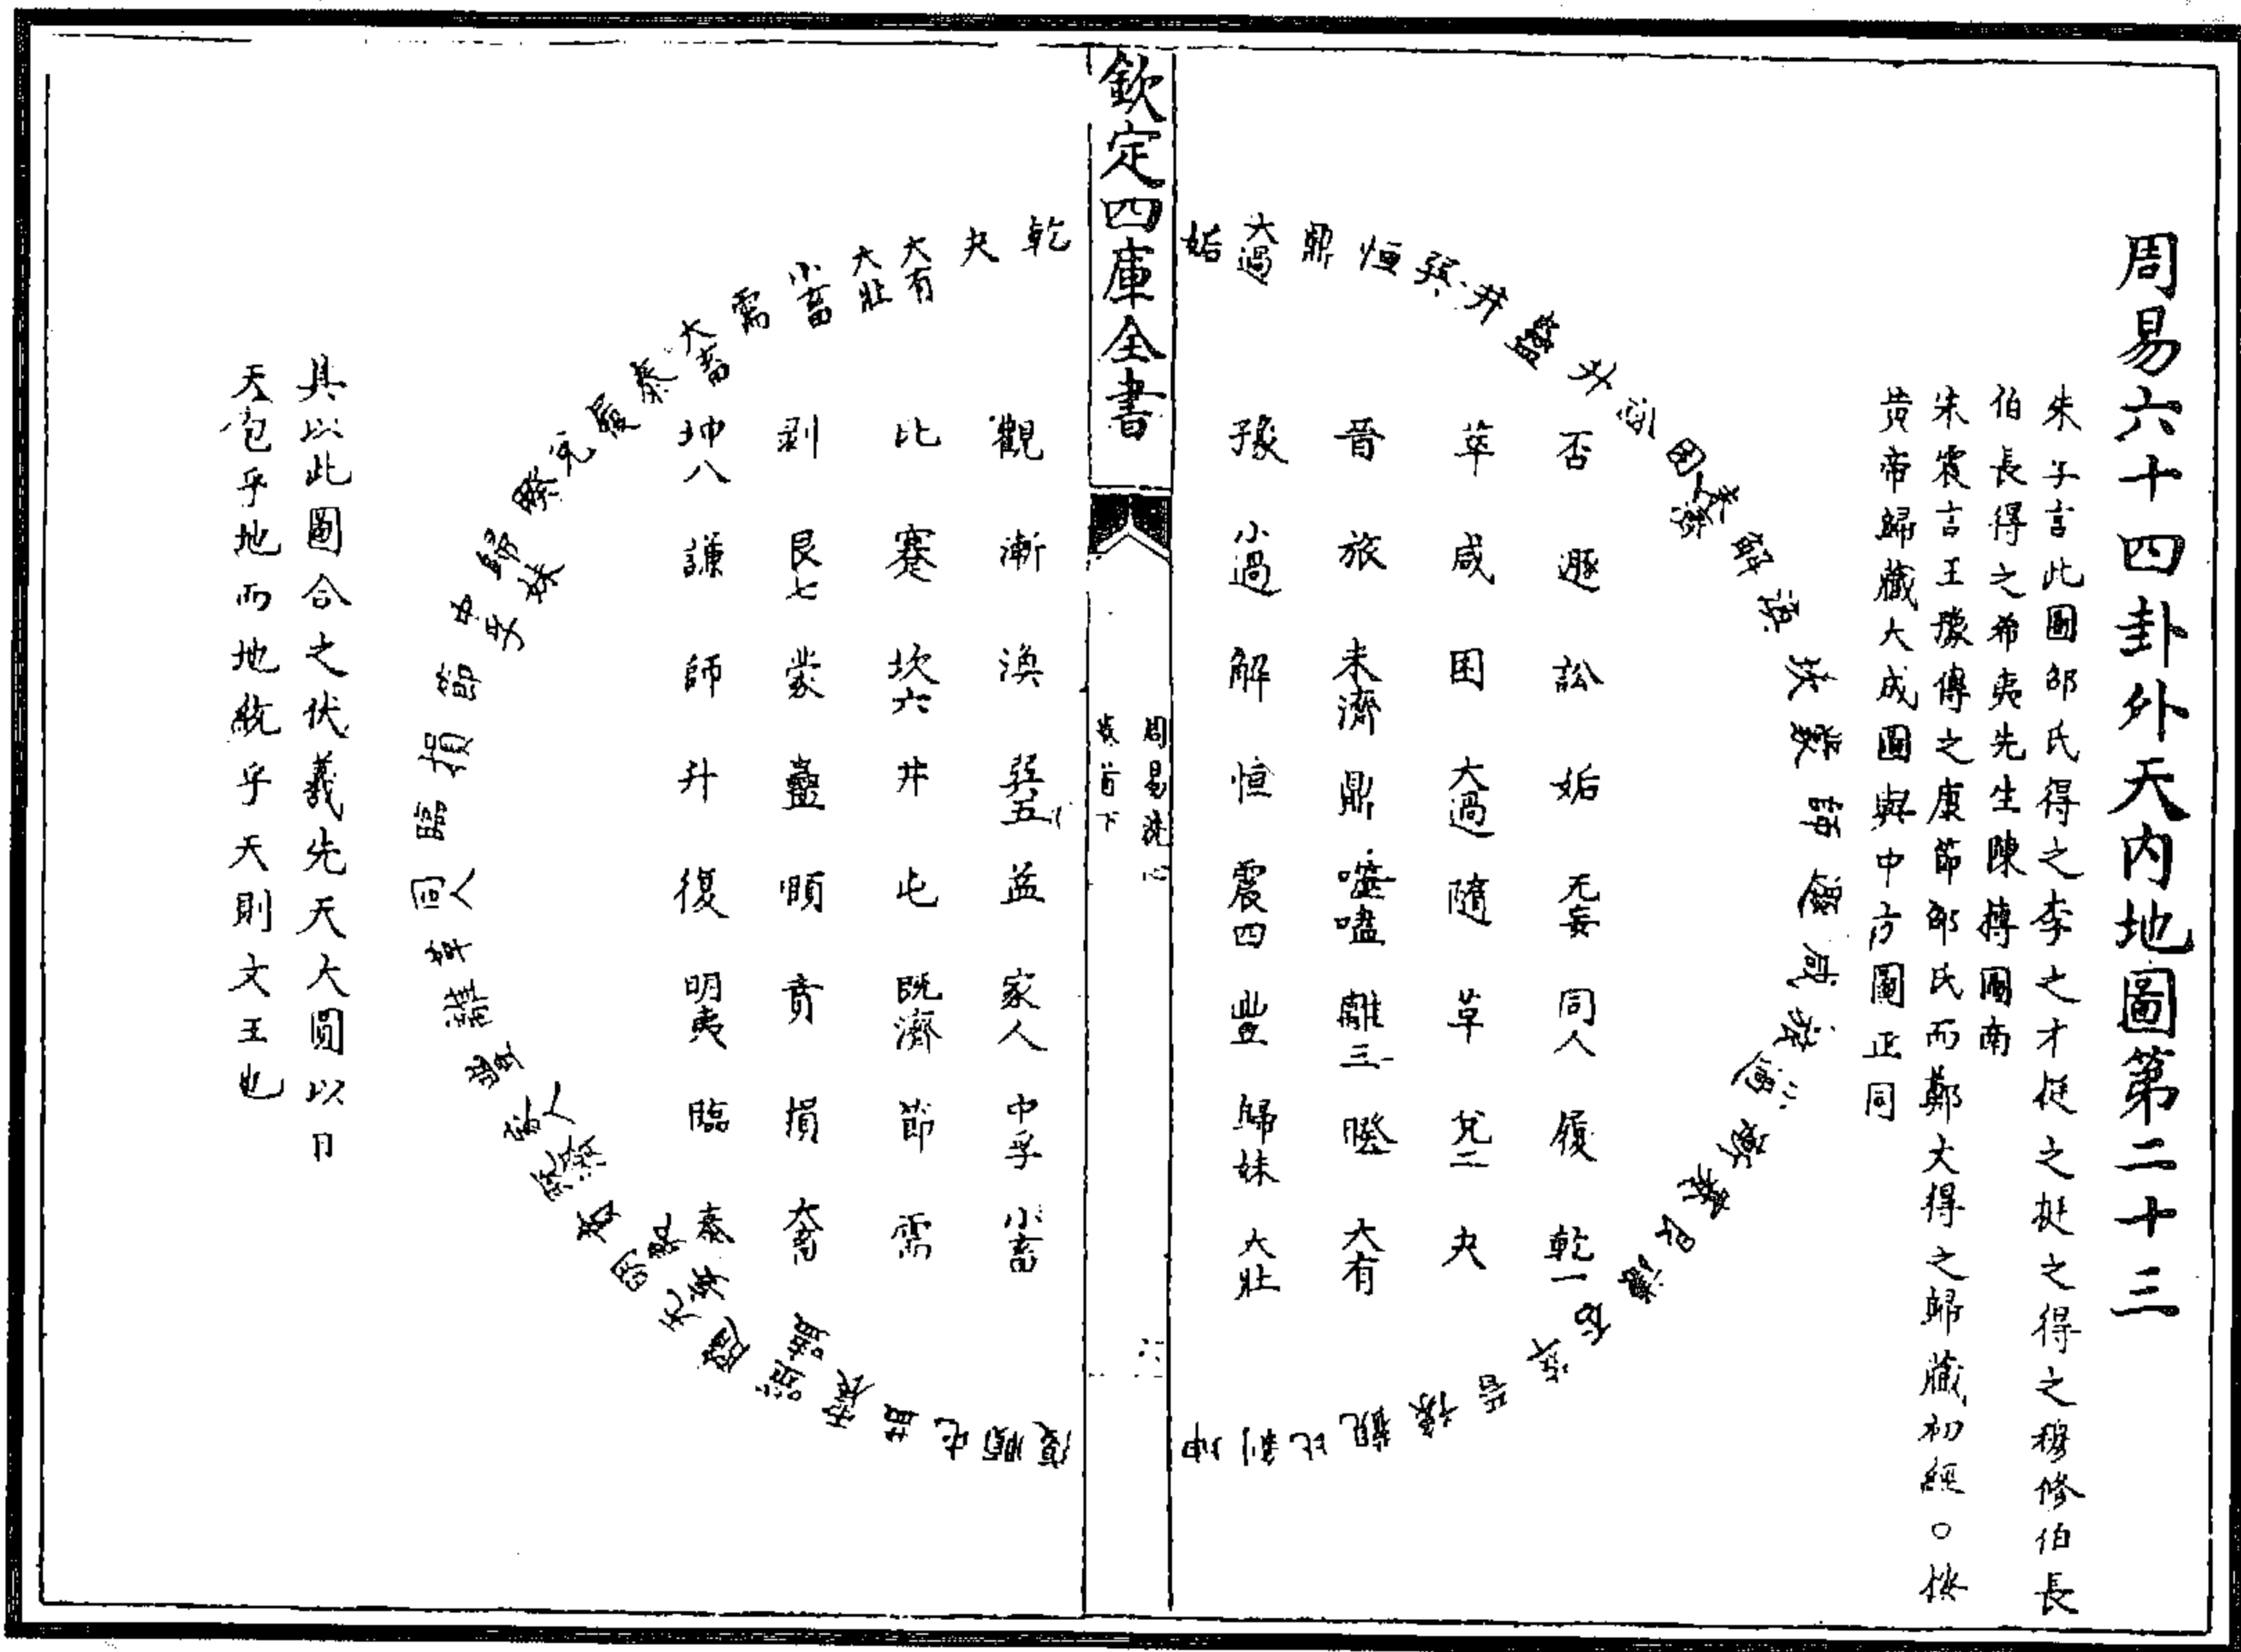 周易六十四卦外天內地圖第二十三
朱子言此圖邵氏得之李之才挺之挺之得之穆修伯長
伯長得之希夷先生陳摶圖南
朱震言王豫傳之康節邵氏而鄭夬得之歸藏初經○按
黃帝歸藏大成圖與中方圖正同
姤 大過 鼎 恒 巽 井 蠱 升 訟 困 未濟 解 渙 坎 蒙 師 遯 咸 旅 小過 漸 蹇 艮 謙 否 萃 晉 豫 觀 比 剝 坤
否 遯 訟 姤 无妄 同人 履 乾一
萃 咸 困 大過 隨 革 兌二 夬
晉 旅 未濟 鼎 噬嗑 離三 睽 大有
豫 小過 解 恒 震四 豐 歸妹 大壯
欽定四庫全書
周易
卷首下
六
觀 漸 渙 巽五 益 家人 中孚 小畜
比 蹇 坎六 井 屯 既濟 節 需
剝 艮七 蒙 蠱 頤 賁 損 大畜
坤八 謙 師 升 復 明夷 臨 泰
乾 夬 大有 大壯 小畜 需 大畜 泰 履 兌 睽 歸妹 中孚 節 損 臨 同人 革 離 豐 家人 既濟 賁 明夷 无妄 隨 噬嗑 震 益 屯 頤 復
具以此圖合之伏羲先天大圓以日
天包乎地而地統乎天則文王也